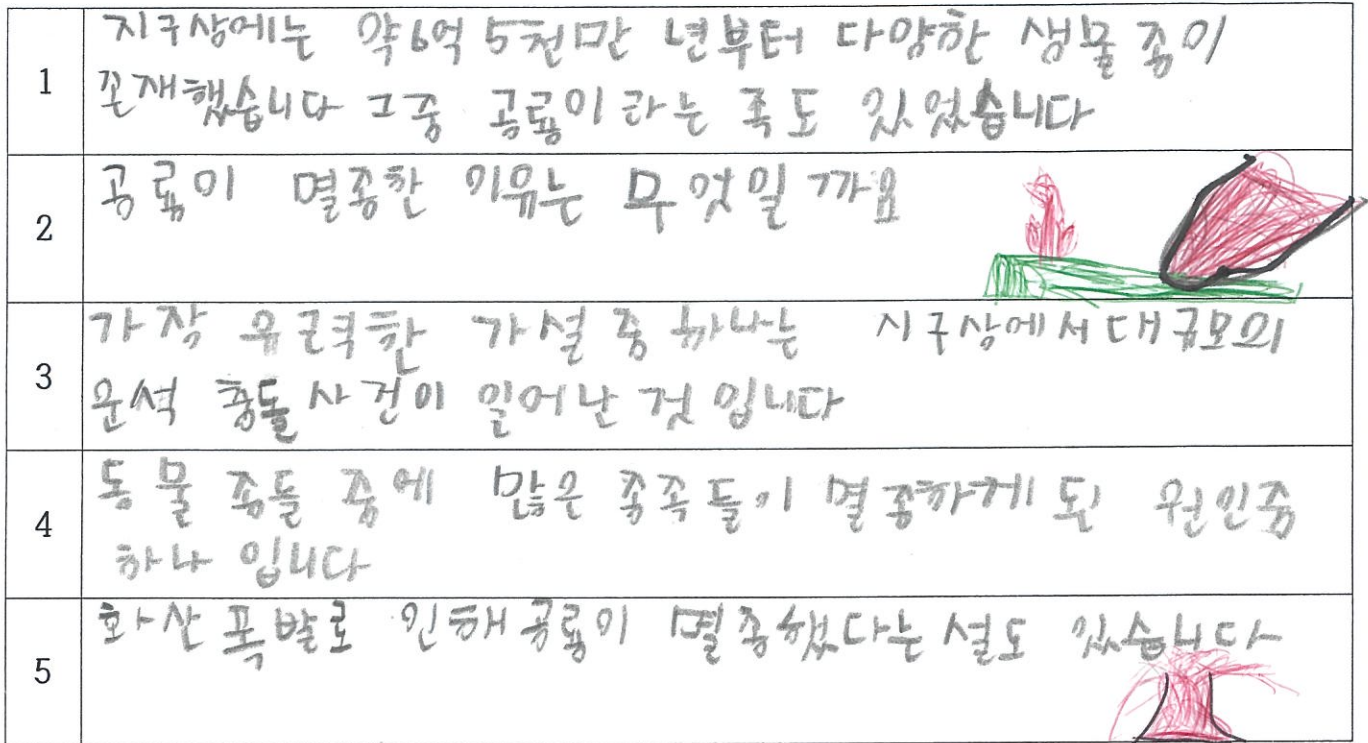 1
지구상에는 약6억 5천만 년부터 다양한 생물 종이
존재했습니다 그중 공룡이라는 족도 있었습니다
2
공룡이 멸종한 이유는 무엇일까요
3
가장 유력한 가설 중 하나는 지구상에서 대규모의
운석 충돌 사건이 일어난 것 입니다
4
동물 종들 중에 많은 종족들이 멸종하게 된 원인중
하나 입니다
5
화산 폭발로 인해 공룡이 멸종했다는 설도 있습니다